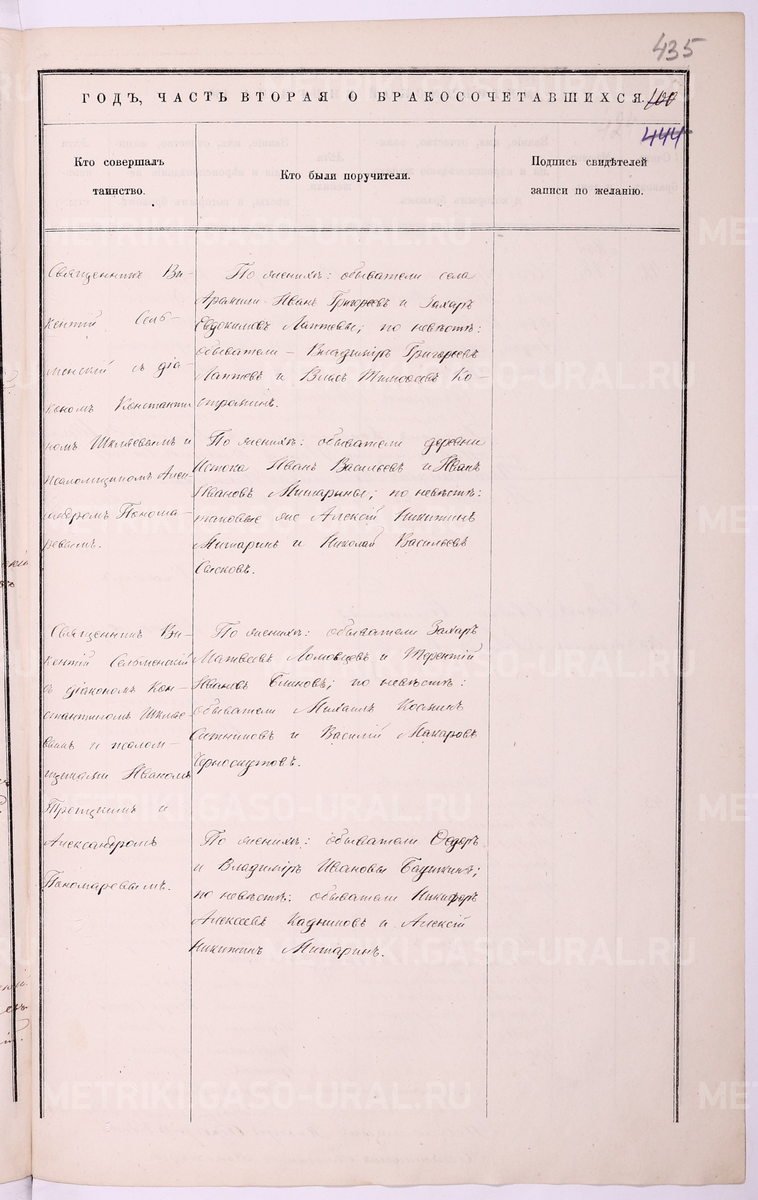 435
ГОДЪ, ЧАСТЬ ВТОРАЯ О БРАКОСОЧЕТАВШИХСЯ.
444
Кто совершалъ
таинство.
Кто были поручители.
Подпись свидѣтелей
записи по желанію.
Священникъ Ви-
кентій Сель-
менскій съ діа-
кономъ Константи
номъ и
псаломщикомъ Алек-
сандромъ Понома-
ревымъ.
По женихѣ: обыватели села
Арамили Иванъ Григорьевъ и Захаръ
Евдокимовъ Лаптевы; по невѣстѣ:
обыватели – Владиміръ Григорьевъ
Лаптевъ и Тимофеевъ Ко-
стромин.
По женихѣ: обыватели деревни
Истока Иванъ Васильевъ и Иванъ
Ивановъ Мишарины; по невѣстѣ:
таковые же Алексій Никитинъ
Мишаринъ и Николай Васильевъ
Сысковъ.
Священникъ Ви-
кентій Сельменскій
съ діакономъ Кон-
стантиномъ
и псалом-
щиками Иваномъ
Троицкимъ и
Александромъ
Пономаревымъ.
По женихѣ: обыватели Захаръ
Матвеевъ Ломовцевъ и Терентій
Ивановъ Блиновъ; по невѣстѣ:
обыватели Михаилъ Косминъ
Ситниковъ и Василій Макаровъ
Черноскутовъ.
По женихѣ: обыватели Ѳедоръ
и Владиміръ Ивановы
по невѣстѣ: обыватели Никифоръ
Алексѣевъ Кадниковъ и Алексій
Никитинъ Мишаринъ.
METRIKI.GASO-URAL.RU